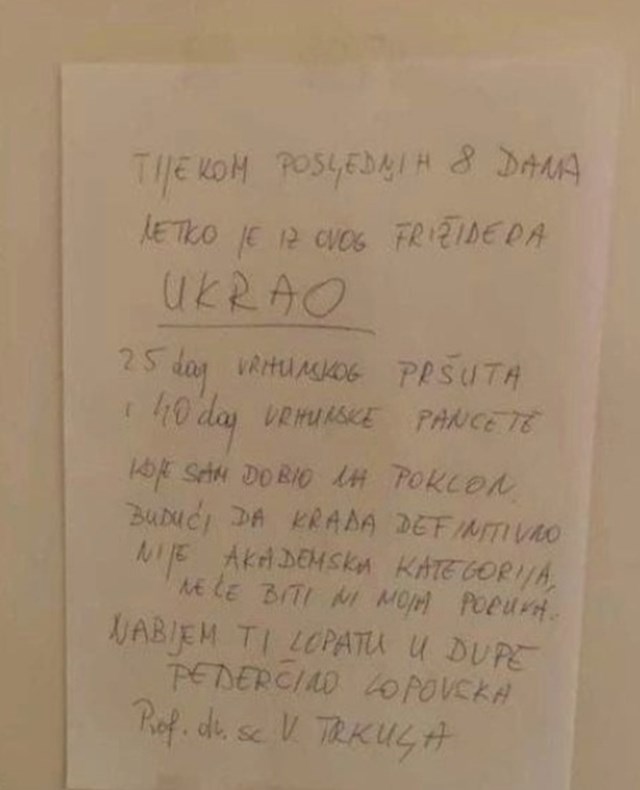 TIJEKOM POSLJEDNJIH 8 DANA
NETKO JE IZ OVOG FRIŽIDERA
UKRAO
25 dag VRHUNSKOG PRŠUTA
i 40 dag VRHUNSKE PANCETE
KOJE SAM DOBIO NA POKLON.
BUDUĆI DA KRAĐA DEFINITIVNO
NIJE AKADEMSKA KATEGORIJA,
NEĆE BITI NI MOJA PORUKA.
NABIJEM TI LOPATU U DUPE
PEDERČINO LOPOVSKA
Prof. dr. sc V. TRKULJA